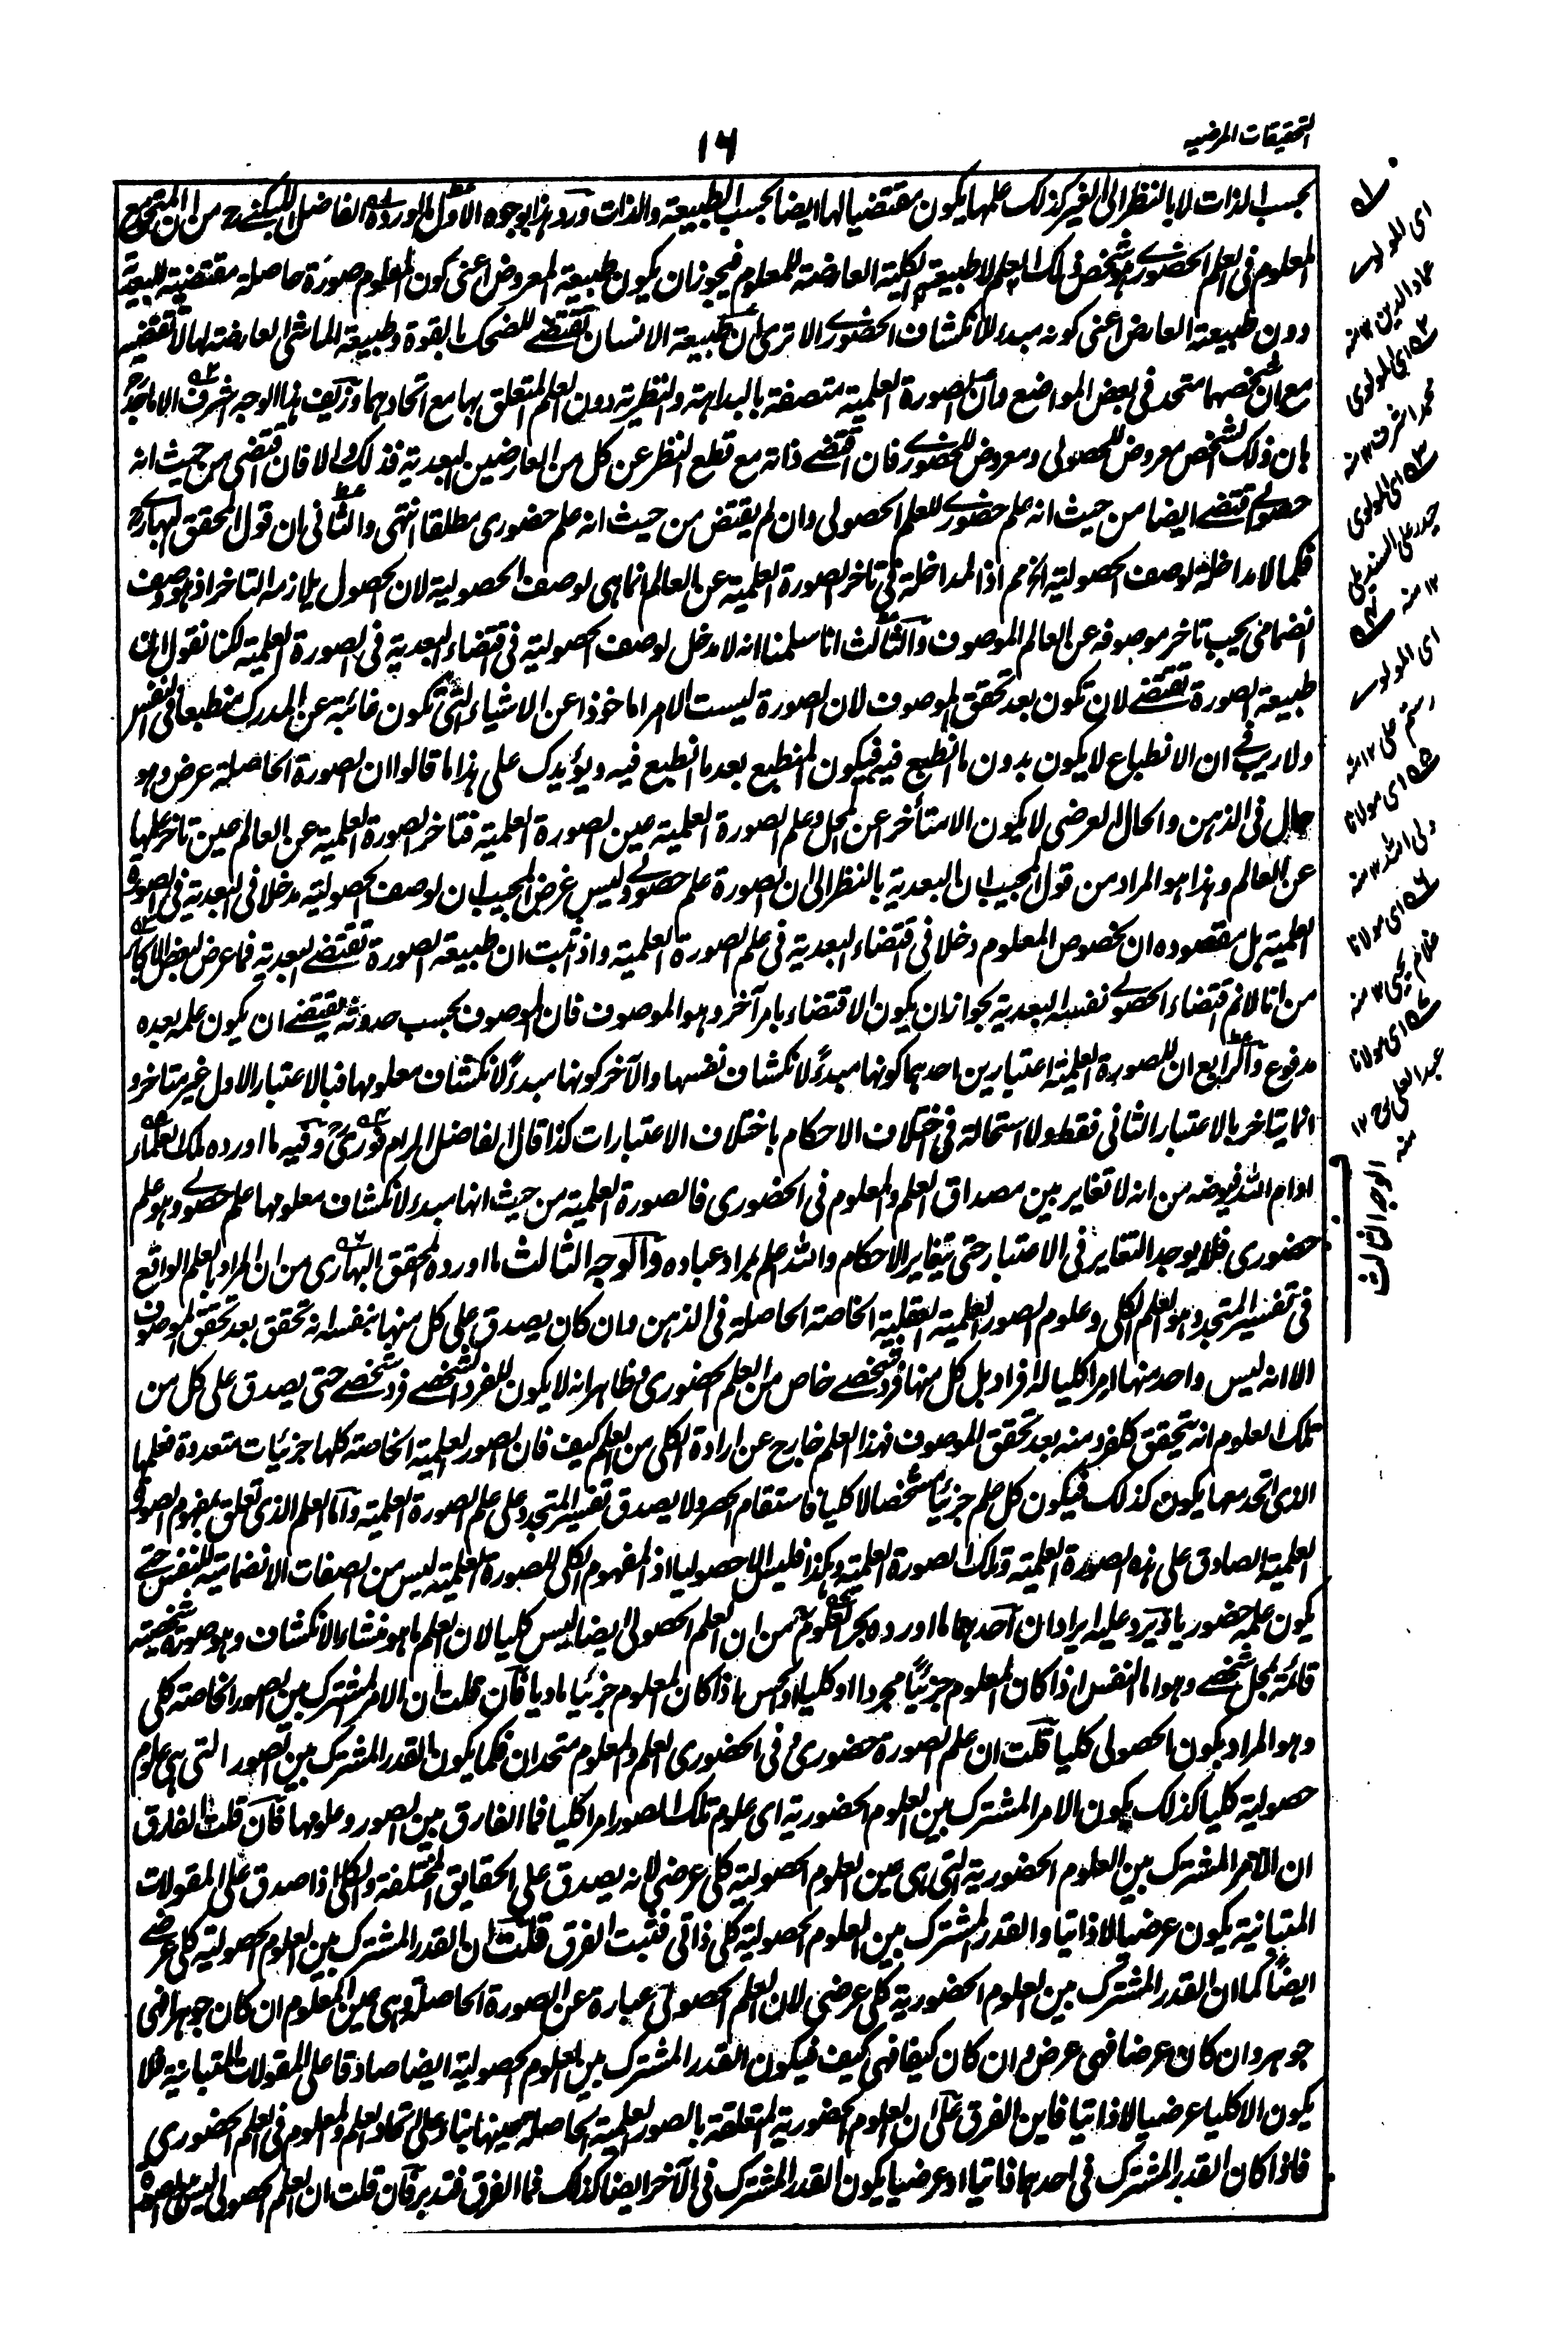 التحقيقات المرضيه
١٦
بحسب الذات لا بالنظر الى الغير كذلك علمها يكون مقتضيا لها ايضا بحسب الطبيعة والذات ورد هذا بوجوه الاول ما اورده الفاضل اللبكنى من ان المتحد مع
المعلوم فى العلم الحضورى هو شخص ذلك العلم لا طبيعة الكلية العارضة للمعلوم فيجوز ان يكون طبيعة المعروض اعنى كون المعلوم صورة حاصلة مقتضية للبعدية
دون طبيعة العارض اعنى كونه مبدء للانكشاف الحضورى الا ترى ان طبيعة الانسان تقتضى للضحك بالقوة وطبيعة الماشى العارضة لها لا تقتضيه
مع ان شخصهما متحد فى بعض المواضع وان الصورة العلمية متصفة بالبداهة والنظرية دون العلم المتعلق بها مع اتحادهما وزيف هذا الوجه اشرف الاماجد
بان ذلك الشخص معروض للحصولى ومعروض للحضورى فان اقتضى ذاته مع قطع النظر عن كل من العارضين البعدية فذلك والا فان اقتضى من حيث انه
حصولى يقتضى ايضا من حيث انه علم حضورى للعلم الحصولى وان لم يقتض من حيث انه علم حضورى مطلقا انتهى والثانى ان قول المحقق البهارى
فكما لا مداخلة لوصف الحصولية الخ مم اذ المداخلة فى تاخر الصورة العلمية عن العالم انما هى لوصف الحصولية لان الحصول يلازمه التاخر اذ هو وصف
انضمامى يجب تاخر موصوفه عن العالم الموصوف والثالث انا سلمنا انه لا مدخل لوصف الحصولية فى اقتضاء البعدية فى الصورة العلمية لكنا نقول ان
طبيعة الصورة تقتضى لان تكون بعد تحقق الموصوف لان الصورة ليست الا امرا ماخوذا عن الاشياء التى تكون غائبة عن المدرك منطبعا فى النفس
ولا ريب فى ان الانطباع لا يكون بدون ما انطبع فيه فيكون المنطبع بعد ما انطبع فيه ويؤيدك على هذا ما قالوا ان الصورة الحاصلة عرض وهو
حال فى الذهن والحال العرضى لا يكون الا متأخر عن المحل وعلم الصورة العلمية عين الصورة العلمية فتاخر الصورة العلمية عن العالم عين تاخر علمها
عن العالم وهذا هو المراد من قول المجيب ان البعدية بالنظر الى ان الصورة علم حصولى وليس غرض المجيب ان لوصف الحصولية مدخلا فى البعدية فى الصورة
العلمية بل مقصوده ان لخصوص المعلوم دخلا فى اقتضاء البعدية فى علم الصورة العلمية واذ ثبت ان طبيعة الصورة تقتضى البعدية فما عرض لبعض الاكابر
من انا لا نم اقتضاء الحصولى نفسه البعدية بجواز ان يكون الاقتضاء بامر آخر وهو الموصوف فان الموصوف بحسب حدوثه يقتضى ان يكون علمه بعده
مدفوع والرابع ان للصورة العلمية اعتبارين احدهما كونها مبدءً لانكشاف نفسها والآخر كونها مبدءً لانكشاف معلومها فبالاعتبار الاول غير متاخر و
انما يتاخر بالاعتبار الثانى فقط ولا استحالة فى اختلاف الاحكام باختلاف الاعتبارات كذا قال الفاضل الرامفورى وفيه ما اورده ملك العلماء
ادام الله فيوضه من انه لا تغاير بين مصداق العلم والمعلوم فى الحضورى فالصورة العلمية من حيث انها مبدء لانكشاف معلومها علم حصولى وهو علم
حضورى فلا يوجد التغاير فى الاعتبار حتى يتغاير الاحكام والله اعلم بمراد عباده والوجه الثالث ما اورده المحقق البهارى من ان المراد بالعلم الواقع
فى تفسير المتجدد هو العلم الكلى وعلوم الصور العلمية العقلية الخاصة الحاصلة فى الذهن وان كان يصدق على كل منها بنفسه انه تحقق بعد تحقق الموصوف
الا انه ليس واحد منها امرا كليا له افراد بل كل منها فرد شخصى خاص من العلم الحضورى وظاهر انه لا يكون للفرد الشخصى فرد شخصى حتى يصدق على كل من
تلك العلوم انه يتحقق كل فرد منه بعد تحقق الموصوف فهذا العلم خارج عن ارادة الكلى من العلم كيف فان الصور العلمية الخاصة كلها جزئيات متعددة فعلمها
الذى اتحد معها يكون كذلك فيكون كل علم جزئيا مشخصا لا كليا فاستقام الحصر ولا يصدق تفسير المتجدد على علم الصورة العلمية واما العلم الذى تعلق بمفهوم الصورة
العلمية الصادق على هذه الصورة العلمية وتلك الصورة العلمية وهكذا فليس الا حصوليا اذ المفهوم الكلى للصورة العلمية ليس من الصفات الانضمامية للنفس حتى
يكون علمه حضوريا ويرد عليه ايرادان احدهما ما اورده بحر العلوم من ان العلم الحصولى ايضا ليس كليا لان العلم ما هو منشاء الانكشاف وهو صورة شخصية
قائمة بمحل شخصى وهو اما النفس اذا كان المعلوم جزئيًا مجردا او كليا او الحس اذا كان المعلوم جزئيا ماديا فان قلت ان الامر المشترك بين الصور الخاصة كلى
وهو المراد بكون الحصولى كليا قلت ان علم الصورة حضورى وفى الحضورى العلم والمعلوم متحدان فكما يكون القدر المشترك بين الصور التى هى علوم
حصولية كليا كذلك يكون الامر المشترك بين العلوم الحضورية اى علوم تلك الصور امرا كليا فما الفارق بين الصور وعلومها فان قلت الفارق
ان الامر المشترك بين العلوم الحضورية التى هى عين العلوم الحصولية كلى عرضى لانه يصدق على الحقايق المختلفة والكلى اذا صدق على المقولات
المتباينة يكون عرضيا لا ذاتيا والقدر المشترك بين العلوم الحصولية كلى ذاتى فثبت الفرق قلت ان القدر المشترك بين العلوم الحصولية كلى عرضى
ايضًا كما ان القدر المشترك بين العلوم الحضورية كلى عرضى لان العلم الحصولى عبارة عن الصورة الحاصلة وهى عين المعلوم ان كان جوهرا فهى
جوهر وان كان عرضا فهى عرض وان كان كيفا فهى كيف فيكون القدر المشترك بين العلوم الحصولية ايضا صادقا على المقولات المتباينة فلا
يكون الا كليا عرضيا لا ذاتيا فاين الفرق على ان العلوم الحضورية المتعلقة بالصور العلمية الحاصلة عينها بناء على اتحاد العلم والمعلوم فى العلم الحضورى
فاذا كان القدر المشترك فى احدهما ذاتيا او عرضيا يكون القدر المشترك فى الآخر ايضا كذلك فما الفرق فتدبر فان قلت ان العلم الحصولى ليس
اى المولوى
عماد الدين ١٢ منه
اى المولوى
محمد اشرف ١٢ منه
اى المولوى
حيدر على السنديلى
١٢ منه
اى المولوى
رستم على ١٢ منه
اى مولانا
ولى الله ١٢ منه
اى مولانا
غلام يحيى ١٢ منه
اى مولانا
عبد العلى ١٢
منه
الوجه الثالث